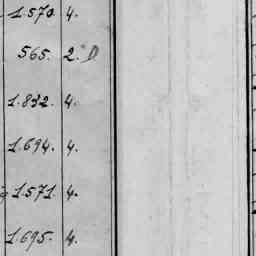 1.570. 4.
565. 2. D
1.832. 4.
1.694. 4.
1.571. 4.
1.695. 4.